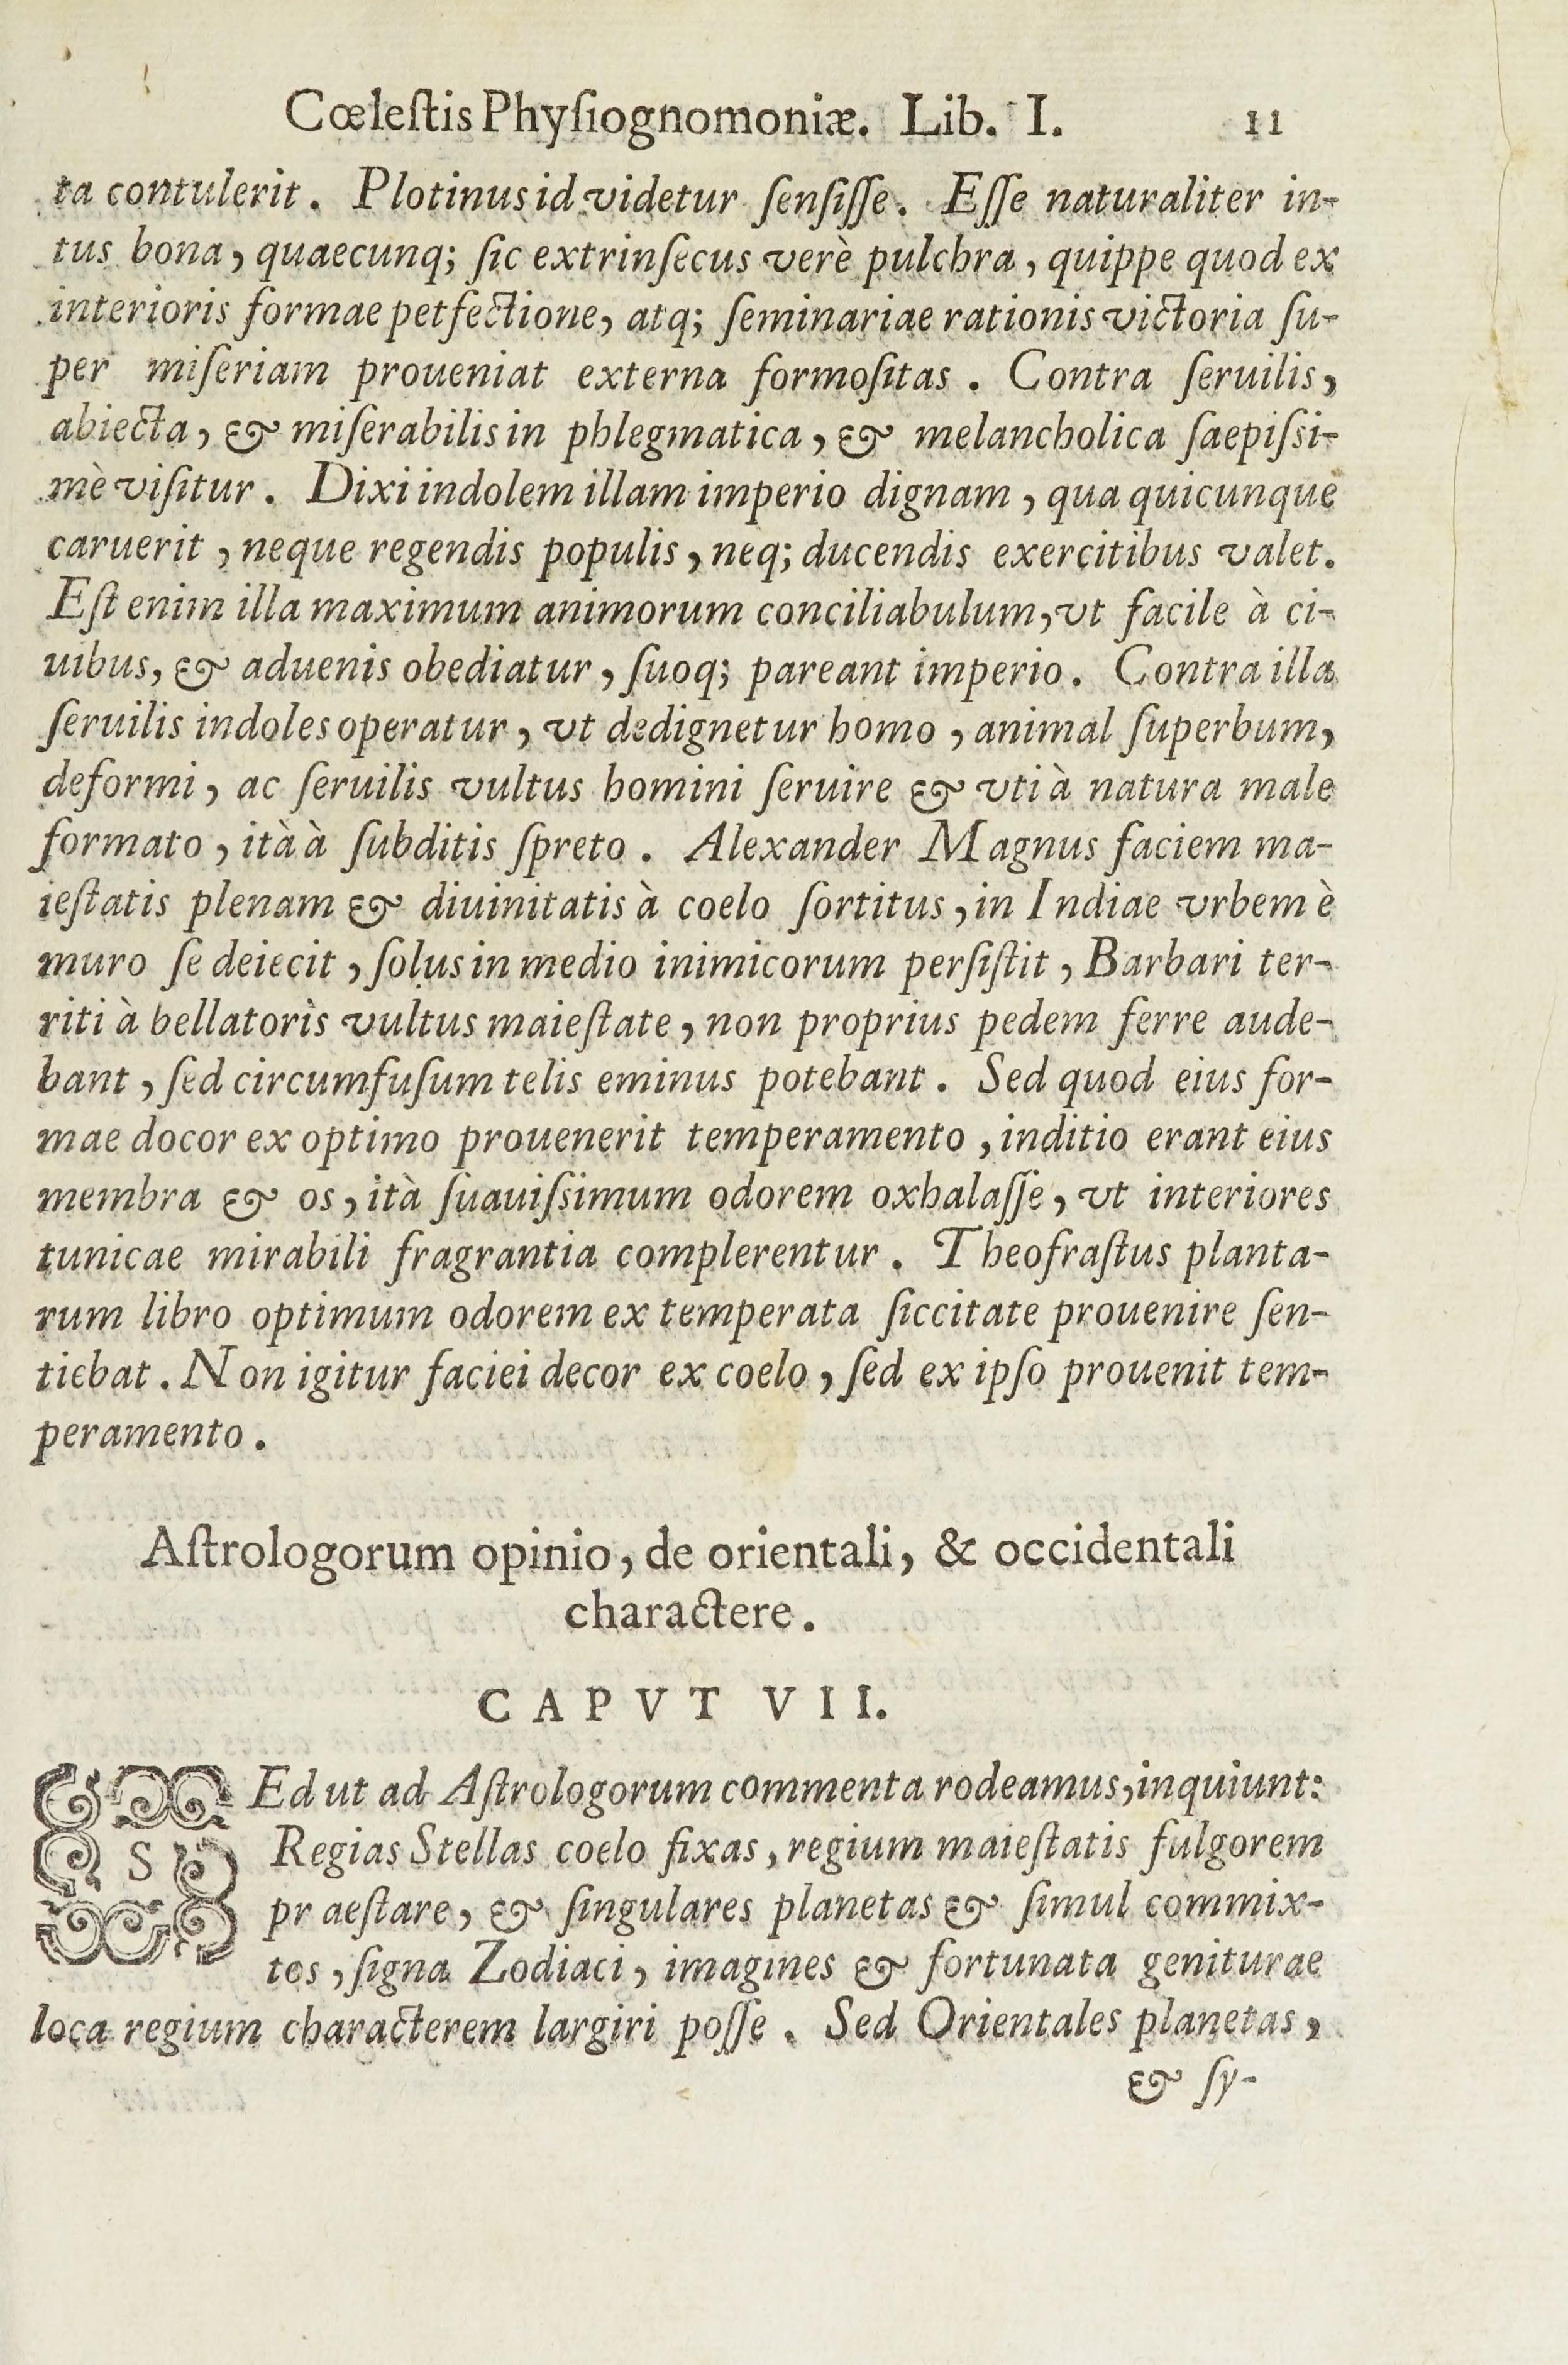 Cœleſtis Phyſiognomoniæ. Lib. I. 11
ta contulerit. Plotinus id videtur ſenſiſſe. Eſſe naturaliter in-
tus bona, quaecunq; ſic extrinſecus verè pulchra, quippe quod ex
interioris formae petfectione, atq; ſeminariae rationis victoria ſu-
per miſeriam proueniat externa formoſitas. Contra ſeruilis,
abiecta, & miſerabilis in phlegmatica, & melancholica ſaepiſsi-
mè viſitur. Dixi indolem illam imperio dignam, qua quicunque
caruerit, neque regendis populis, neq; ducendis exercitibus valet.
Eſt enim illa maximum animorum conciliabulum, vt facile à ci-
uibus, & aduenis obediatur, ſuoq; pareant imperio. Contra illa
ſeruilis indoles operatur, vt dedignetur homo, animal ſuperbum,
deformi, ac ſeruilis vultus homini ſeruire & vti à natura male
formato, ità à ſubditis ſpreto. Alexander Magnus faciem ma-
ieſtatis plenam & diuinitatis à coelo ſortitus, in Indiae vrbem è
muro ſe deiecit, ſolus in medio inimicorum perſiſtit, Barbari ter-
riti à bellatoris vultus maieſtate, non proprius pedem ferre aude-
bant, ſed circumfuſum telis eminus potebant. Sed quod eius for-
mae docor ex optimo prouenerit temperamento, inditio erant eius
membra & os, ità ſuauiſsimum odorem oxhalaſſe, vt interiores
tunicae mirabili fragrantia complerentur. Theofraſtus planta-
rum libro optimum odorem ex temperata ſiccitate prouenire ſen-
tiebat. Non igitur faciei decor ex coelo, ſed ex ipſo prouenit tem-
peramento.
Aſtrologorum opinio, de orientali, & occidentali
charactere.
CAPVT VII.
SEd ut ad Aſtrologorum commenta rodeamus, inquiunt:
Regias Stellas coelo fixas, regium maieſtatis fulgorem
pr aeſtare, & ſingulares planetas & ſimul commix-
tos, ſigna Zodiaci, imagines & fortunata geniturae
loca regium characterem largiri poſſe. Sed Orientales planetas,
& ſy-